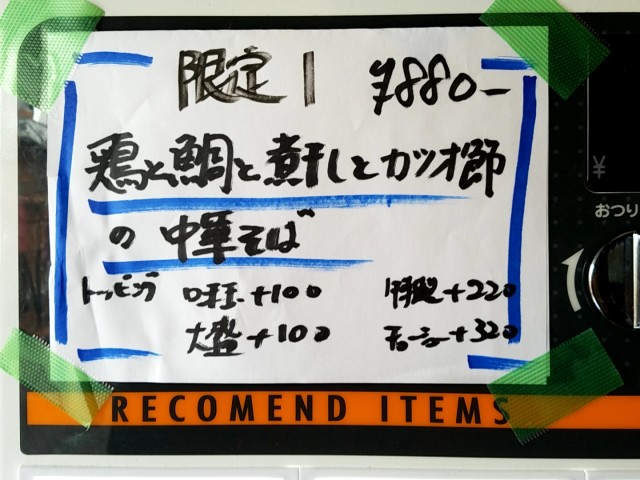 限定1 ¥880-
鶏と鯛と煮干しとカツオ節
の中華そば
トッピング 味玉+100 特製+220
大盛+100 チャーシュー+320
¥
おつり
RECOMEND ITEMS